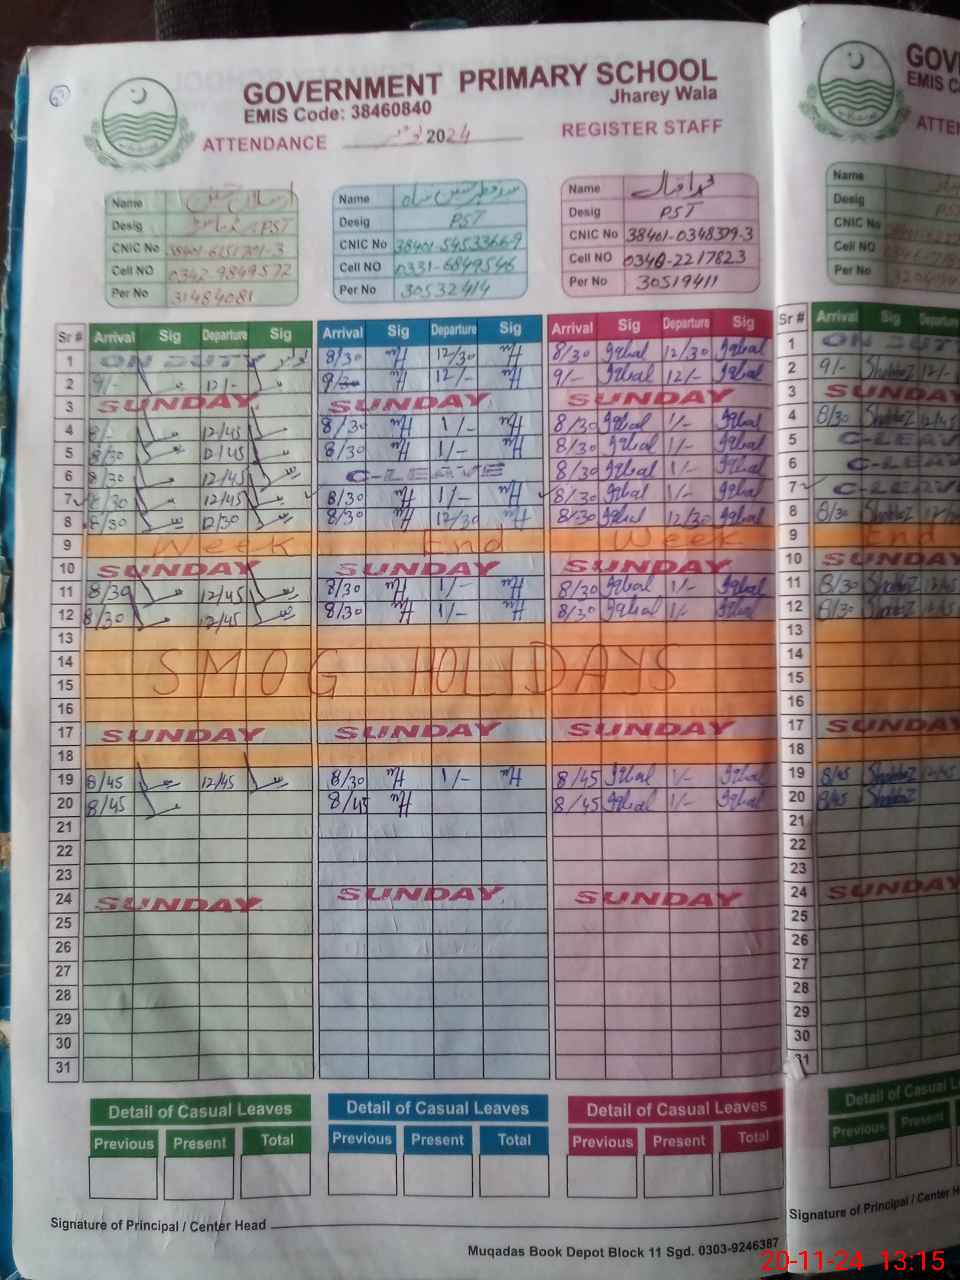 GOVERNMENT PRIMARY SCHOOL
Jharey Wala
EMIS Code: 38460840
ATTENDANCE نومبر 2024 REGISTER STAFF
Name ارسلان حسین
Desig PST
CNIC No
Cell NO 0342-9849572
Per No 31484081
Name
Desig PST
CNIC No 38401-5453366-9
Cell NO 0331-6849546
Per No 30532414
Name محمد اقبال
Desig PST
CNIC No 38401-0348379-3
Cell NO 0340-2217623
Per No 30519411
Sr # Arrival Sig Departure Sig Arrival Sig Departure Sig Arrival Sig Departure Sig
1 ON DUTY 8/30 12/30 8/30 Iqbal 12/30 Iqbal
2 9/- 12/- 9/30 12/- 9/- Iqbal 12/- Iqbal
3 SUNDAY SUNDAY SUNDAY
4 8/- 12/45 8/30 1/- 8/30 Iqbal 1/- Iqbal
5 8/30 12/45 8/30 1/- 8/30 Iqbal 1/- Iqbal
6 8/30 12/45 C-LEAVE 8/30 Iqbal 1/- Iqbal
7 8/30 12/45 8/30 1/- 8/30 Iqbal 1/- Iqbal
8 8/30 12/30 8/30 12/30 8/30 Iqbal 12/30 Iqbal
9 Week End Week
10 SUNDAY SUNDAY SUNDAY
11 8/30 12/45 8/30 1/- 8/30 Iqbal 1/- Iqbal
12 8/30 12/45 8/30 1/- 8/30 Iqbal 1/- Iqbal
13
14 SMOG HOLIDAYS
15
16
17 SUNDAY SUNDAY SUNDAY
18
19 8/45 12/45 8/30 1/- 8/45 Iqbal 1/- Iqbal
20 8/45 8/45 8/45 Iqbal 1/- Iqbal
21
22
23
24 SUNDAY SUNDAY SUNDAY
25
26
27
28
29
30
31
Detail of Casual Leaves Detail of Casual Leaves Detail of Casual Leaves
Previous Present Total Previous Present Total Previous Present Total
Signature of Principal / Center Head
Muqadas Book Depot Block 11 Sgd. 0303-9246387
GOV
EMIS C
ATTEN
Name
Desig
CNIC No
Cell NO
Per No
Sr # Arrival Sig Departure
1 ON DUT
2 9/- Shahbaz 12/-
3 SUNDAY
4 8/30 Shahbaz 12/45
5 C-LEAV
6 C-LEAV
7 C-LEAV
8 8/30 Shahbaz
9 End
10 SUNDAY
11 8/30 Shahbaz 12/45
12 8/30 Shahbaz 12/45
13
14
15
16
17 SUNDAY
18
19 8/45 Shahbaz 12/45
20 8/45 Shahbaz
21
22
23
24 SUNDAY
25
26
27
28
29
30
31
Detail of Casual Le
Previous Present
Signature of Principal / Center He
20-11-24 13:15